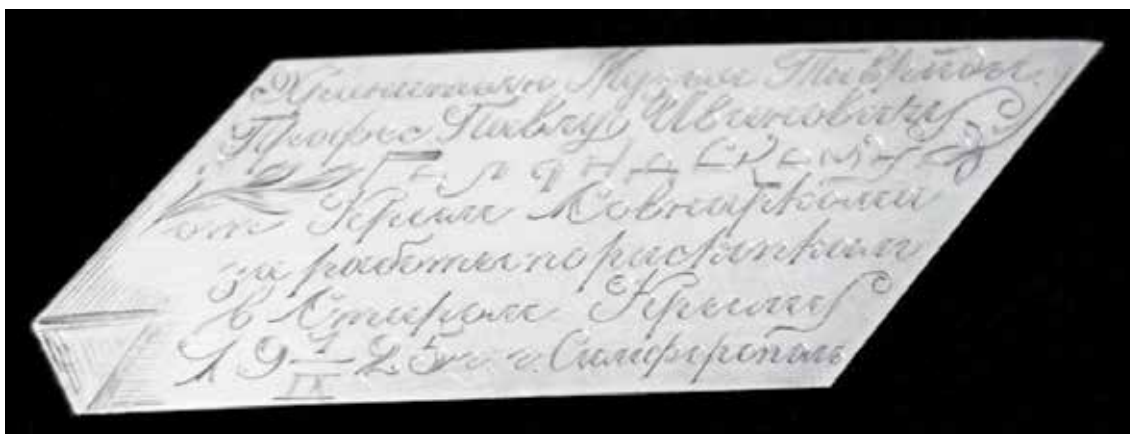 Хранителю Музея Тавриды
Профес Павлу Ивановичу
Голландскому
от Крым Совнаркома
за работы по раскопкам
в Старом Крыму
19 1/IX 25 г. г. Симферополь